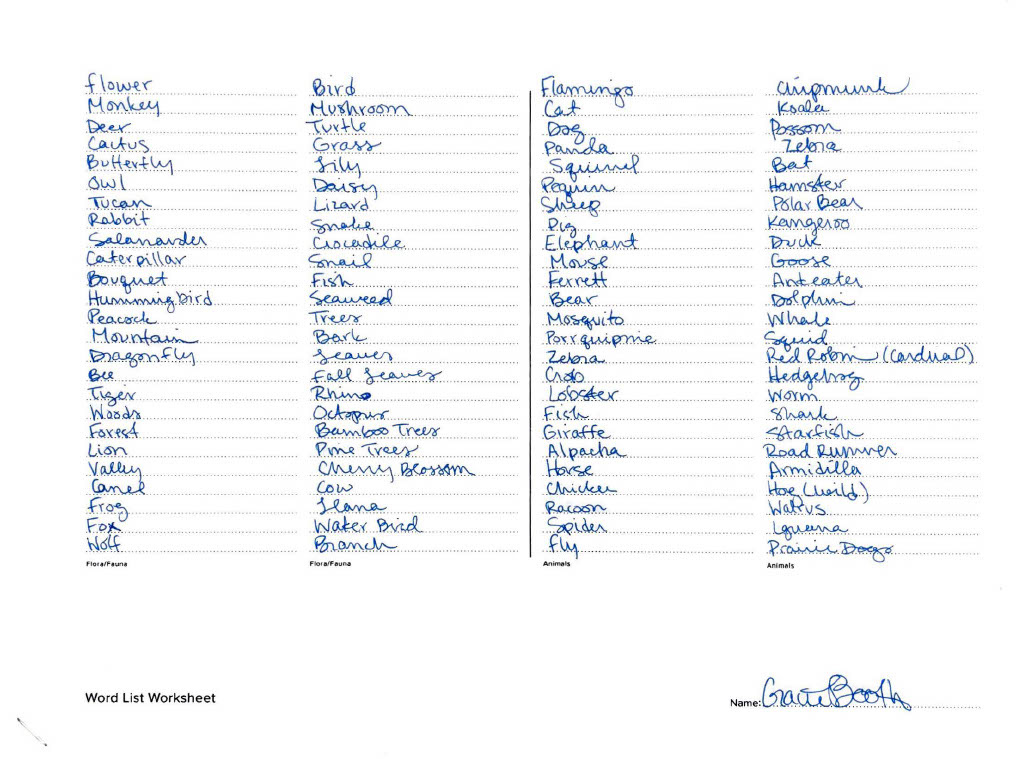 flower
Monkey
Deer
Cactus
Butterfly
Owl
Tucan
Rabbit
Salamander
Caterpillar
Bouquet
Hummingbird
Peacock
Mountain
Dragonfly
Bee
Tiger
Woods
Forest
Lion
Valley
Camel
Frog
Fox
Wolf
Flora/Fauna
Bird
Mushroom
Turtle
Grass
Lily
Daisy
Lizard
Snake
Crocadile
Snail
Fish
Seaweed
Trees
Bark
Leaves
Fall Leaves
Rhino
Octopus
Bamboo Trees
Pine Trees
Cherry Blossom
Cow
Llana
Water Bird
Branch
Flora/Fauna
Flamingo
Cat
Dog
Panda
Squirrel
Pequin
Sheep
Pig
Elephant
Mouse
Ferrett
Bear
Mosquito
Porrquipine
Zebra
Crab
Lobster
Fish
Giraffe
Alpacha
Horse
Chicken
Racoon
Spider
Fly
Animals
Chipmunk
Koala
Possom
Zebra
Bat
Hamster
Polar Bear
Kangeroo
Duck
Goose
Anteater
Dolphin
Whale
Squid
Red Robin (Cardinal)
Hedgehog
Worm
Shark
Starfish
Road Runner
Armidilla
Hog (wild)
Walrus
Iguana
Prairie Dogo
Animals
Word List Worksheet
Name: Gracie Booth